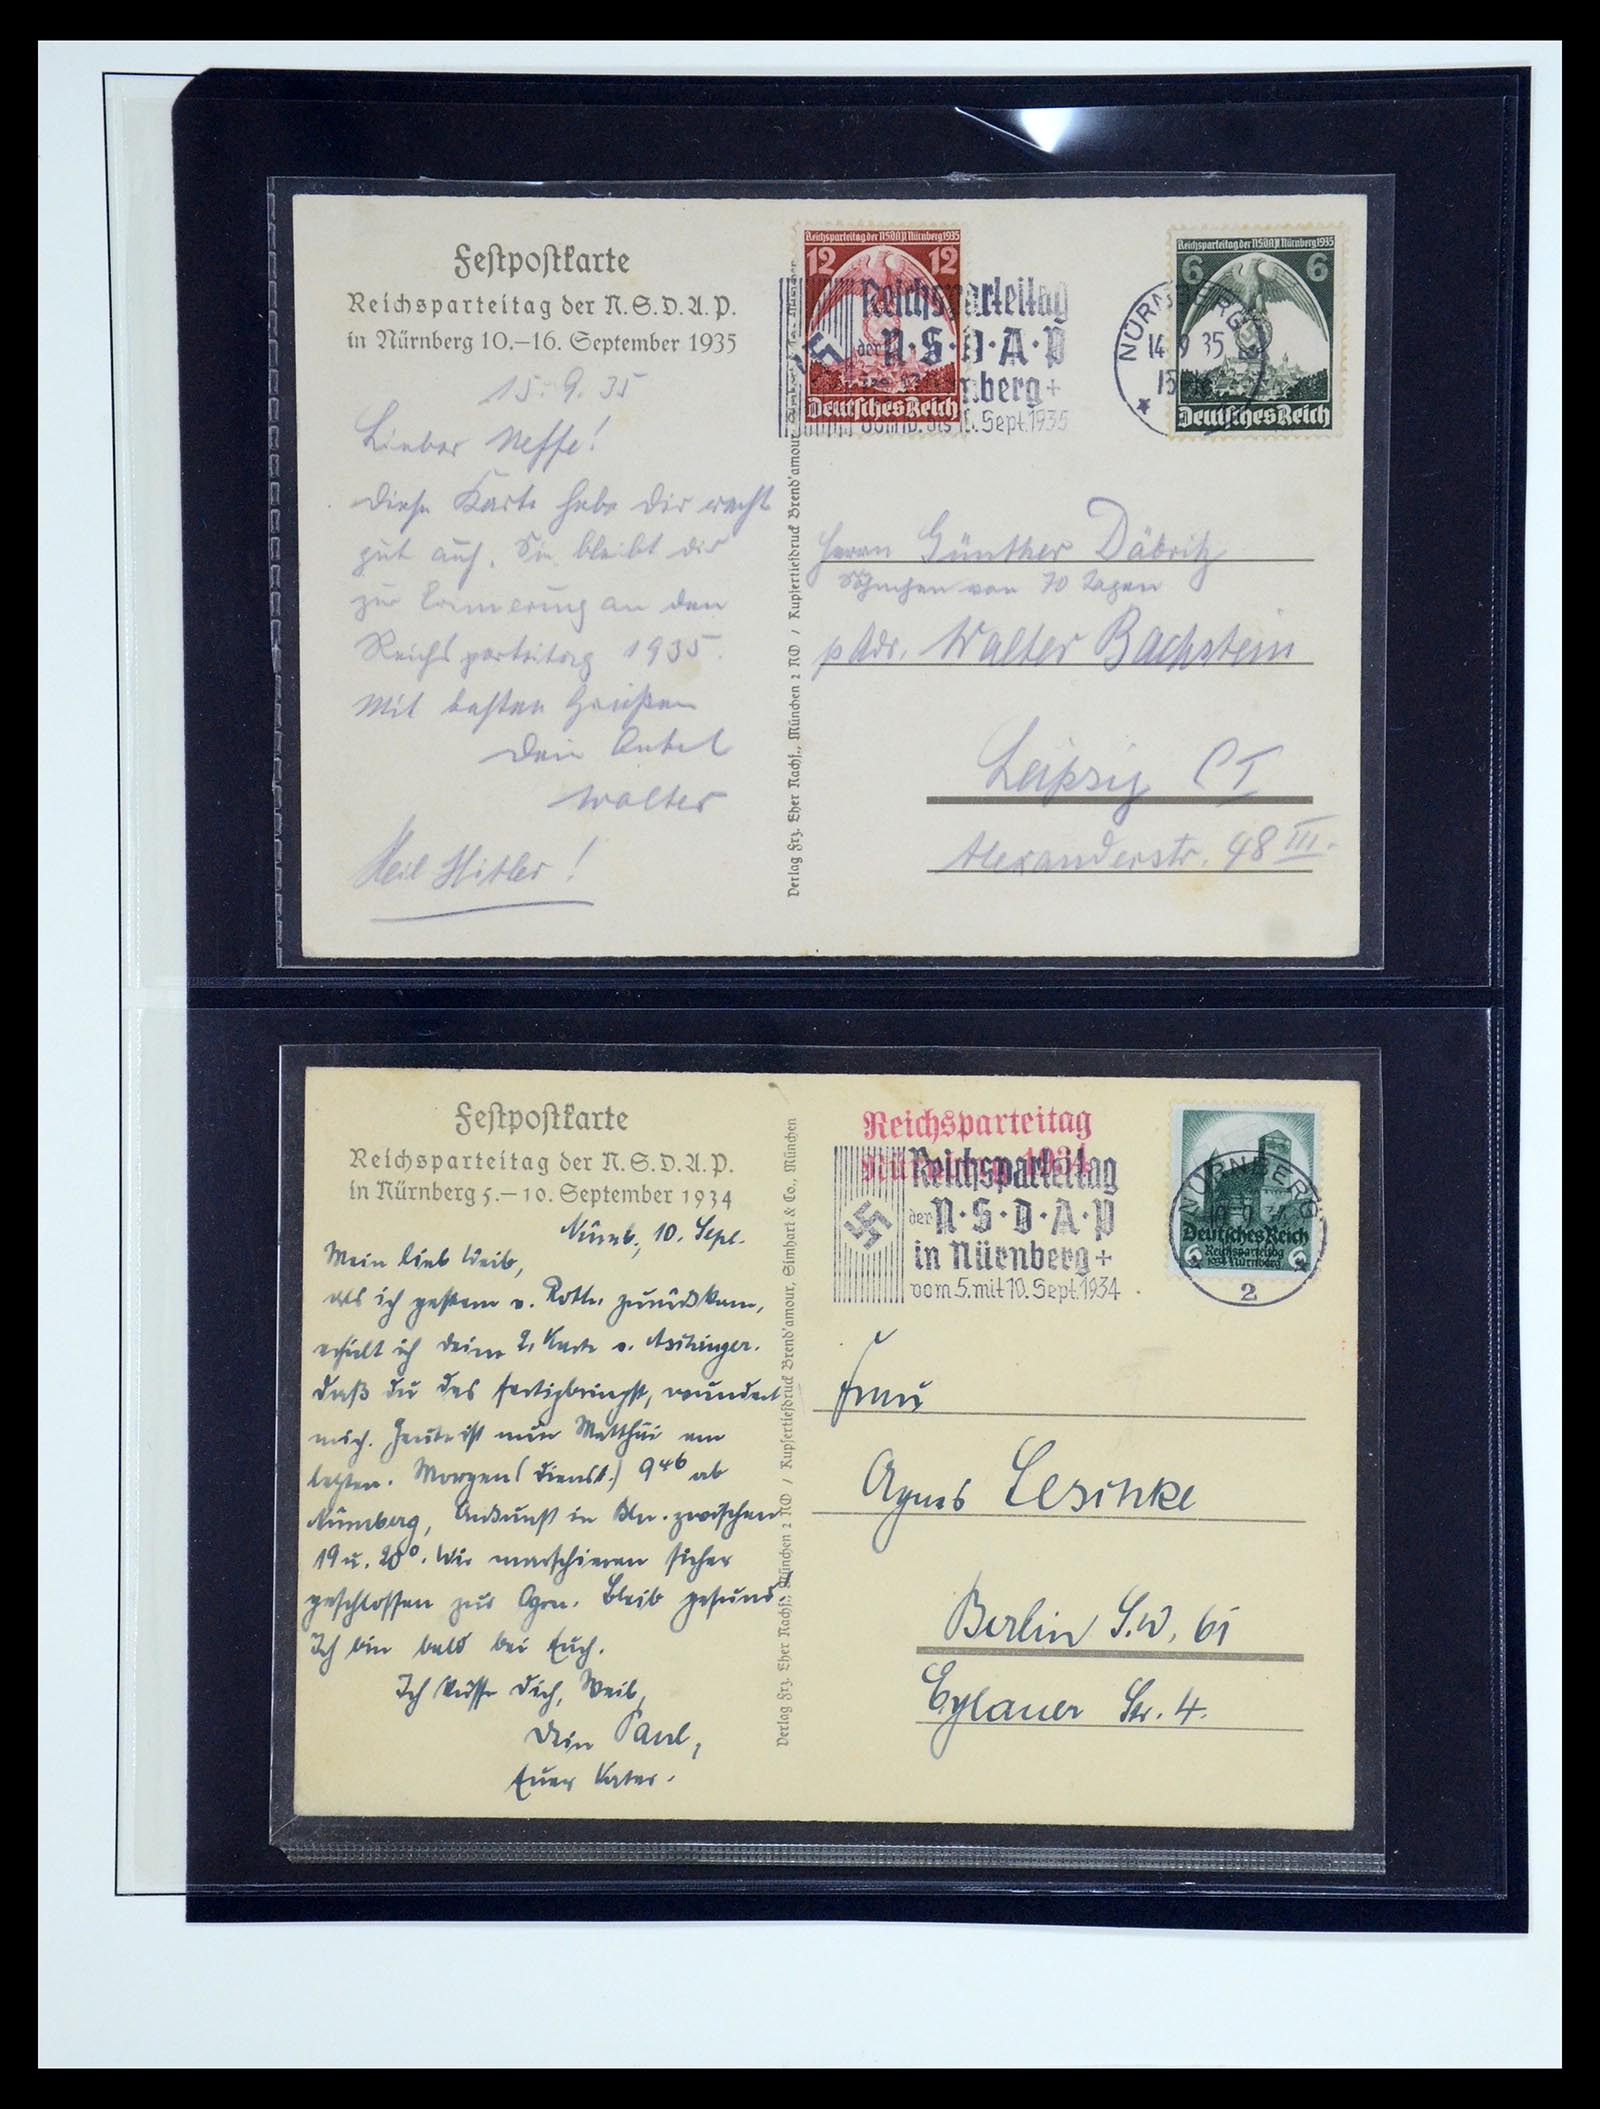 Festpostkarte
Reichsparteitag der N.S.D.A.P.
in Nürnberg 10.–16. September 1935
15.9.35
Lieber Neffe!
diese Karte hebe Dir recht
gut auf. Sie bleibt dir
zur Erinnerung an den
Reichsparteitag 1935.
Mit besten Grüßen
Dein Onkel
Walter
Heil Hitler!
Verlag Frz. Eher Nachf., München 2 NO / Kupfertiefdruck Brend'amour,
Reichsparteitag der NSDAP Nürnberg 1935
12 12
Deutsches Reich
Reichsparteitag
der N·S·D·A·P
Nürnberg +
vom 10. bis 16. Sept. 1935
Reichsparteitag der NSDAP Nürnberg 1935
6 6
Deutsches Reich
NÜRNBERG
14 9 35
15
Herrn Günther Däbritz
Söhnchen von 70 Tagen
p Adr. Walter Bachstein
Leipzig C I
Alexanderstr. 48 III.
Festpostkarte
Reichsparteitag der N.S.D.A.P.
in Nürnberg 5.–10. September 1934
Nürnb., 10. Sept.
Mein lieb Weib,
als ich gestern v. Roth. zurückkam,
erhielt ich Deine 2. Karte v. Aschinger.
Daß Du das fertigbringst, wundert
mich. Heute ist nun
letzten. Morgen (Dienst.) 9⁴⁶ ab
Nürnberg, Ankunft in Bln. zwischen
19 u. 20⁰. Wir marschieren sicher
geschlossen zur Bleib gesund
Ich bin bald bei Euch.
Ich küsse Dich, Weib,
Dein Paul,
Euer Vater.
Verlag Frz. Eher Nachf., München 2 NO / Kupfertiefdruck Brend'amour, Simhart & Co., München
Reichsparteitag
Nürnberg 1934
Reichsparteitag
der N·S·D·A·P
in Nürnberg +
vom 5. mit 10. Sept. 1934
NÜRNBERG
2
Deutsches Reich
6 Reichsparteitag 6
1934 Nürnberg
Frau
Agnes Leschke
Berlin S.W. 61
Eylauer Str. 4.